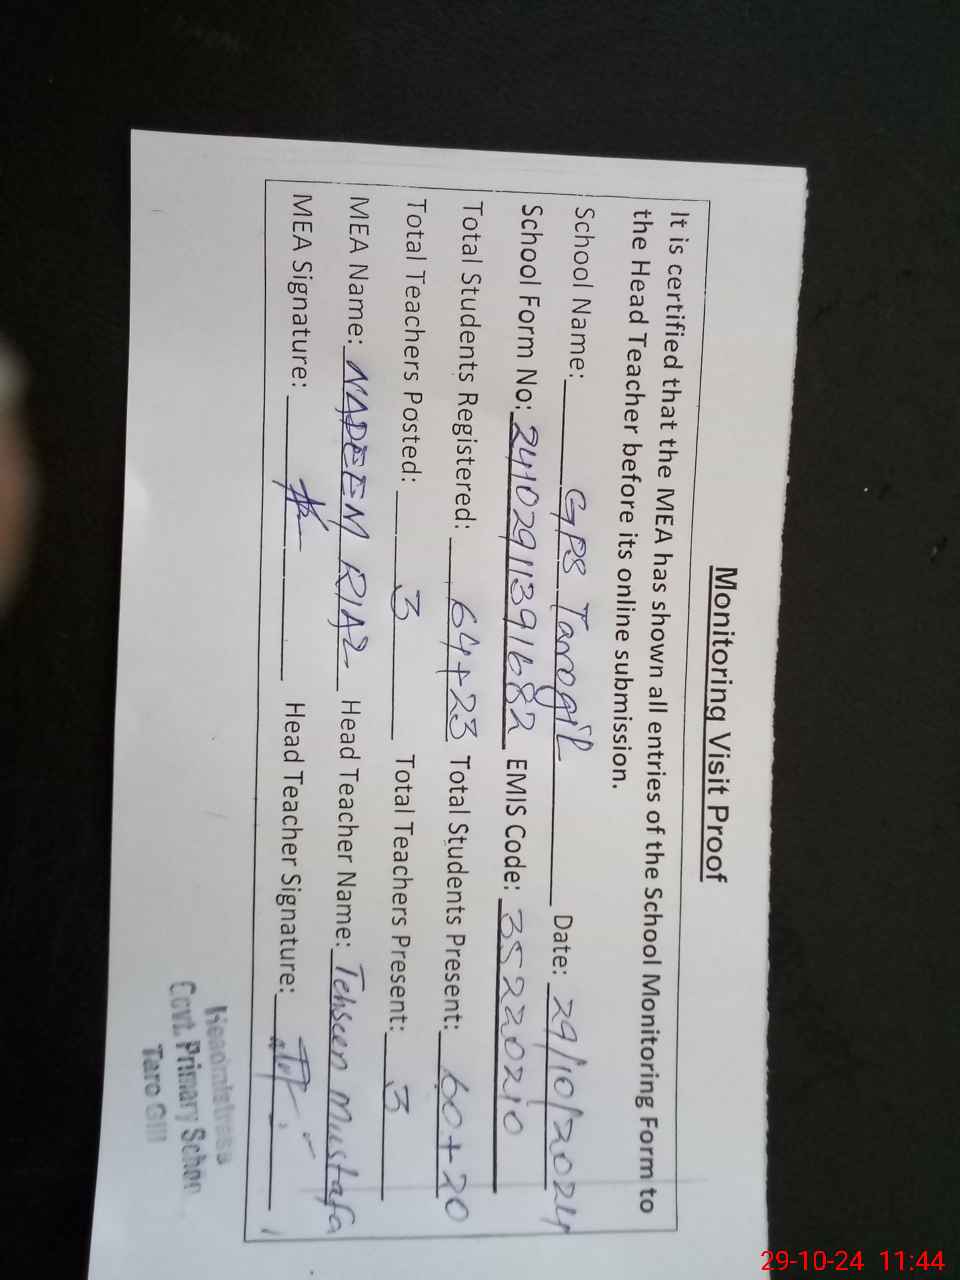 Monitoring Visit Proof
It is certified that the MEA has shown all entries of the School Monitoring Form to
the Head Teacher before its online submission.
School Name: GPS Tarogil Date: 29/10/2024
School Form No: 24102911391682 EMIS Code: 35220210
Total Students Registered: 64+23 Total Students Present: 60+20
Total Teachers Posted: 3 Total Teachers Present: 3
MEA Name: NADEEM RIAZ Head Teacher Name: Tehseen Mustafa
MEA Signature: Head Teacher Signature:
Headmistress
Govt. Primary School
Taro Gill
29-10-24 11:44